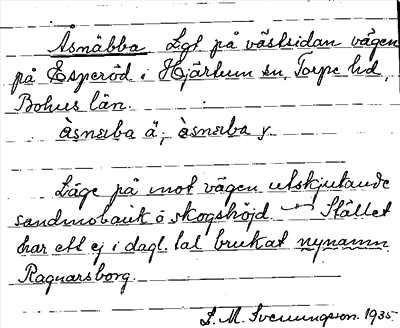 Åsnäbba Lgt på västsidan vägen
på Esperöd i Hjärtum sn, Torpe hd,
Bohus län.
àsnɛba ä, àsnɛba y
Läge på mot vägen utskjutande
sandmobank å skogshöjd – Stället
har ett ej i dagl. tal brukat nynamn
Ragnarsborg.
S. M. Svenungsson. 1935